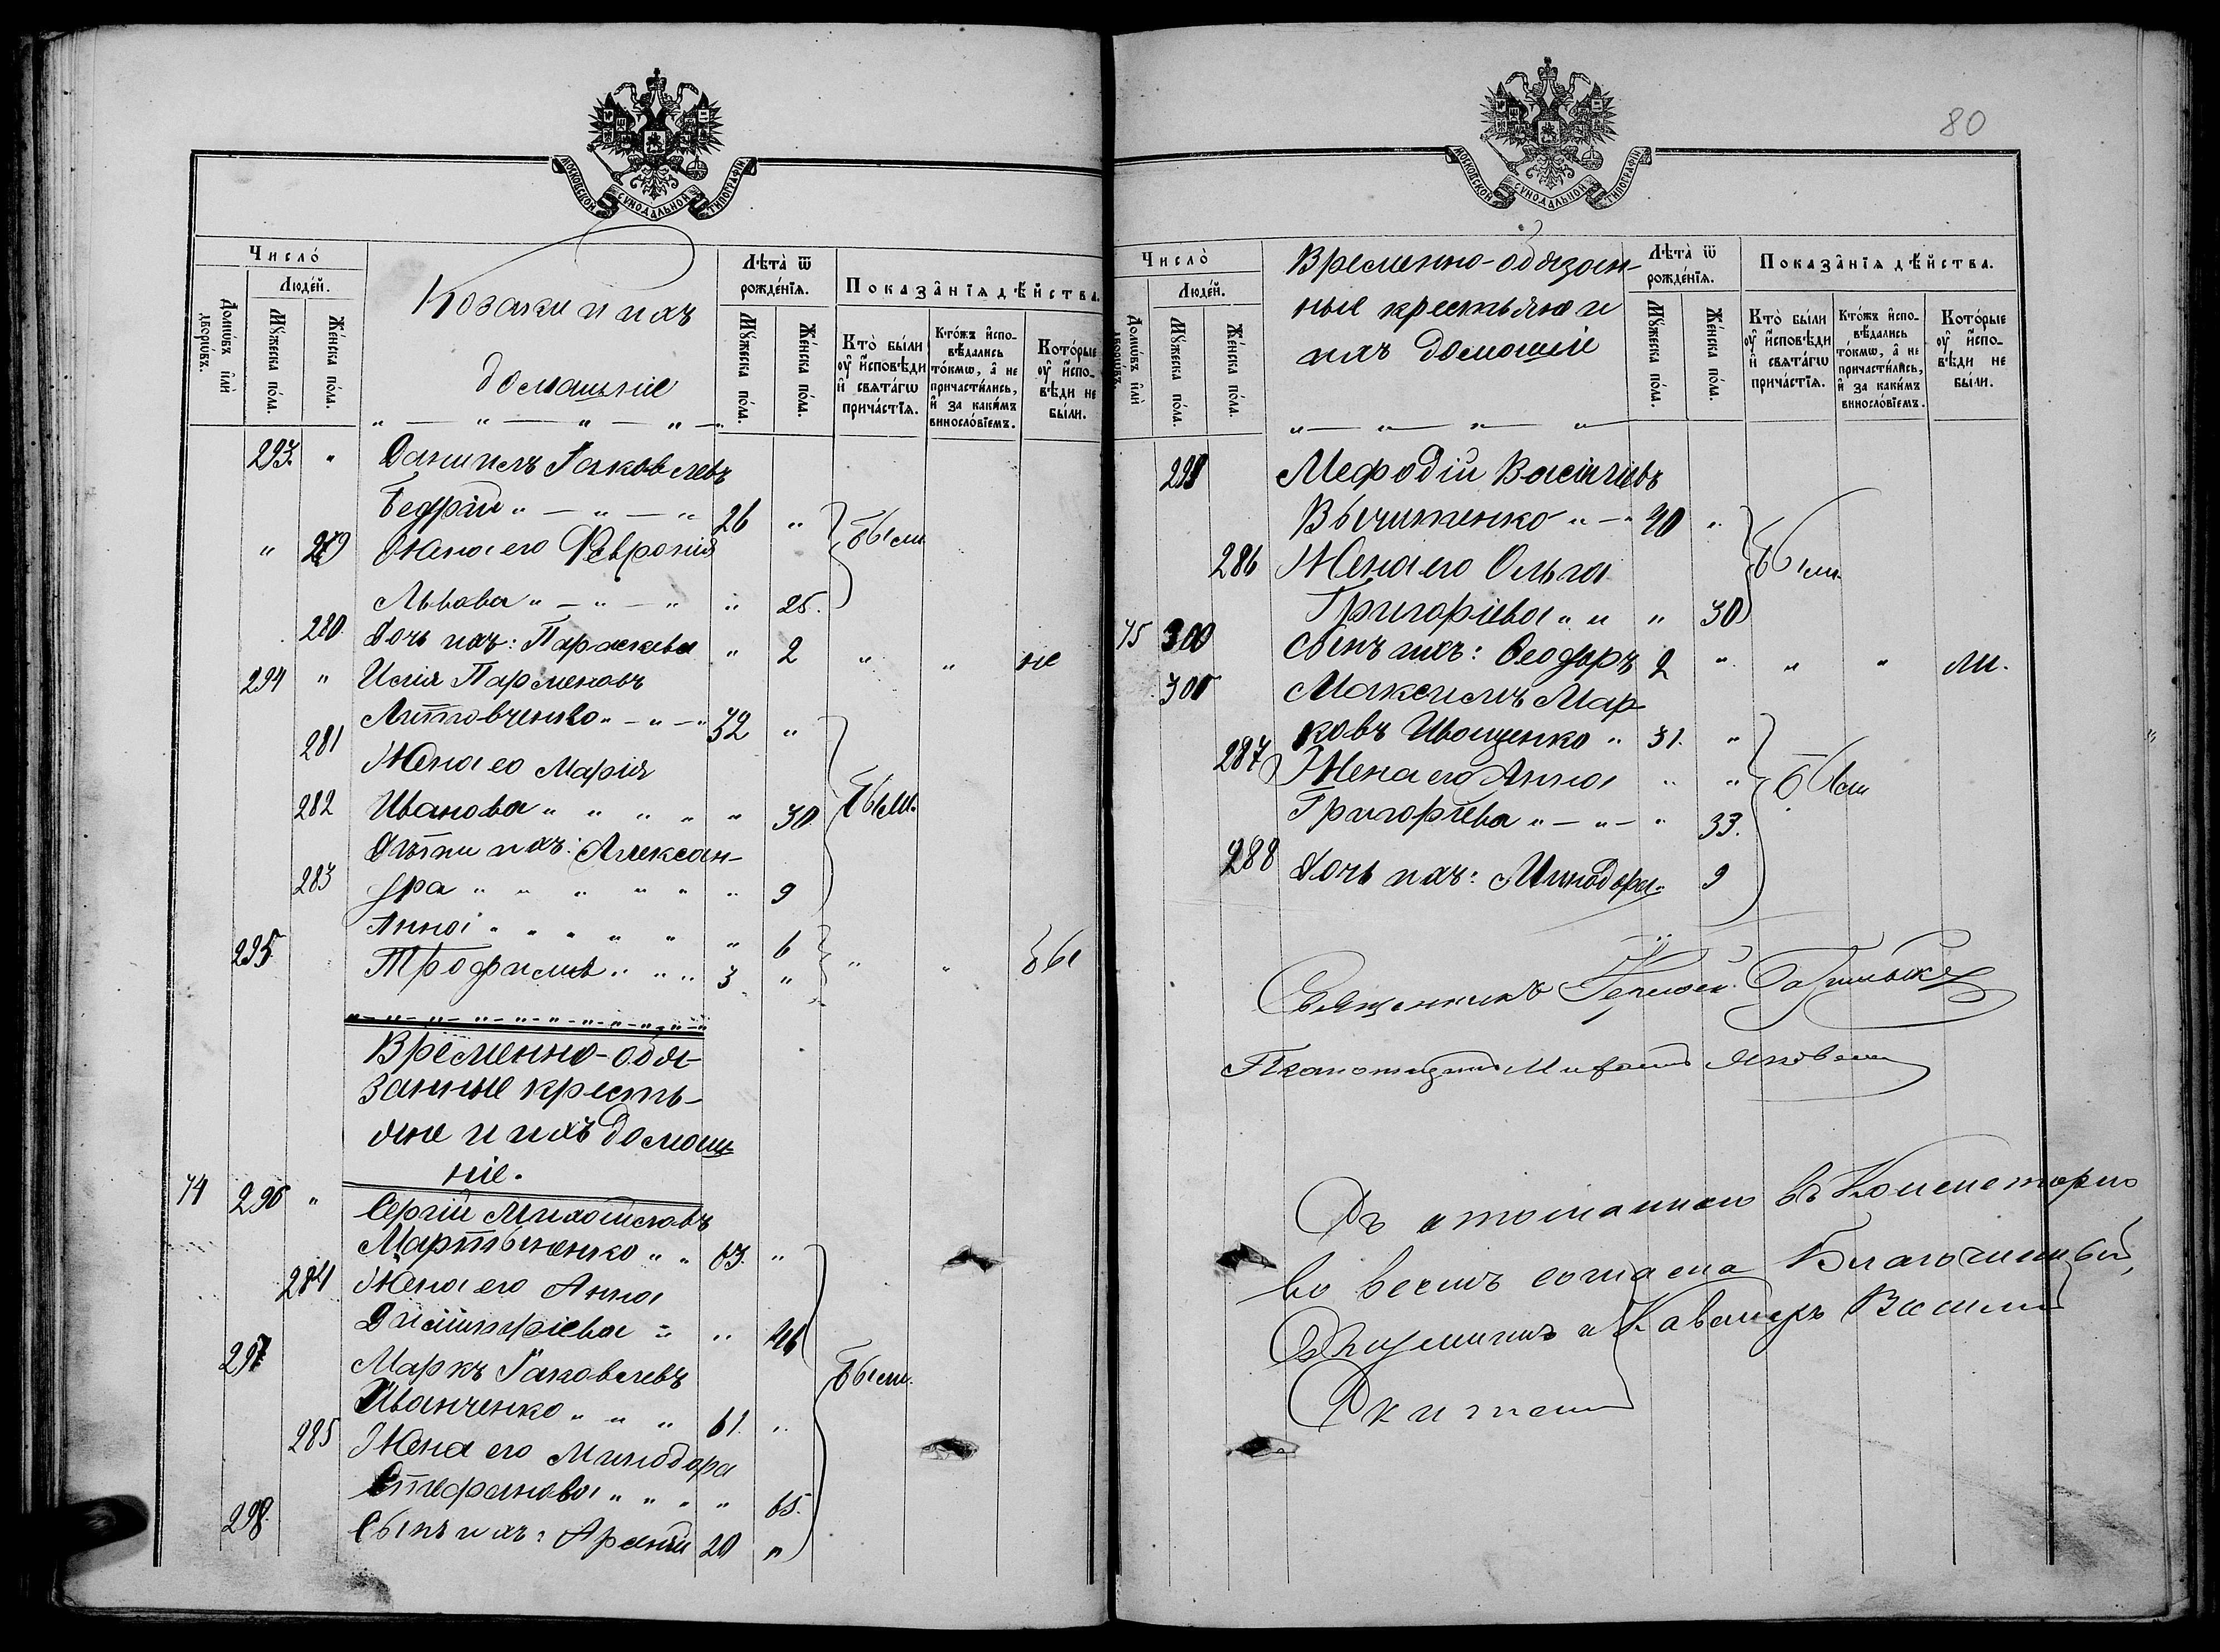 МОСКОВСКОЙ СѴНОДАЛЬНОЙ ТИПОГРАФІИ
Число̀
Людéй.
Домѡ́въ и҆лѝ дворѡ́въ.
Мꙋ́жеска по́ла.
Же́нска по́ла.
Козаки и ихъ
домашніе
Лѣ́та ѿ рожде́нїѧ.
Мꙋ́жеска по́ла.
Же́нска по́ла.
Показа̂нїѧ дѣ́йства.
Кто̀ бы́ли оу҆ и҆сповѣди и҆ свѧта́гѡ прича́стїѧ.
Кто́жъ и҆спо-вѣ́дались то́кмѡ, а҆ не причасти́лись, и҆ за каки́мъ виносло́вїемъ.
Кото́рые оу҆ и҆спо-вѣди не бы́ли.
293. " Даніилъ Іаковлевъ
Бедрій " — " — " 26 "
" 279 Жена его Февронія были
Львова " — " — " " 25.
280. Дочь ихъ: Параскева " 2 " " не
294 " Илія Парменовъ
Литовченко " — " — " 32 "
281 Жена ео Марія
282 Иванова " " " " " 30. были.
Дѣти ихъ: Алексан-
283 дра " " " " " " 9
Анна " " " " " " 6
295. Трофимъ " " " 3 " " " бы
Временно-обя-
занные кресть-
яне и ихъ домаш-
ніе.
74 296 " Сергій Михайловъ
Мартыненко " " 63. "
284 Жена его Анна
Димитріева " " 46
297 Маркъ Іаковлевъ были.
Иванченко " " " 61. "
285 Жена его Минодора
Стефанова " " " " 65.
298. Сынъ ихъ: Арсеній 20 "
80
МОСКОВСКОЙ СѴНОДАЛЬНОЙ ТИПОГРАФІИ
Число̀
Людéй.
Домѡ́въ и҆лѝ дворѡ́въ.
Мꙋ́жеска по́ла.
Же́нска по́ла.
Временно-обязан-
ные крестьяне и
ихъ домашніе
Лѣ́та ѿ рожде́нїѧ.
Мꙋ́жеска по́ла.
Же́нска по́ла.
Показа̂нїѧ дѣ́йства.
Кто̀ бы́ли оу҆ и҆сповѣди и҆ свѧта́гѡ прича́стїѧ.
Кто́жъ и҆спо-вѣ́дались то́кмѡ, а҆ не причасти́лись, и҆ за каки́мъ виносло́вїемъ.
Кото́рые оу҆ и҆спо-вѣди не бы́ли.
299 Мефодій Василіевъ
" — " 40 "
286 Жена его Ольга были
Григоріева " " " 30
75 300 Сынъ ихъ: Ѳеодоръ 2 " " " ли.
301 Максимъ Мар-
ковъ Иващенко " 31. "
287 Жена его Анна " " были
Григоріева " — " — " 33.
288 Дочь ихъ: Минодора. 9
Священникъ
Яковлевъ
Съ въ Консисторію
во всемъ согласна Благочинный,
и Кавалеръ Василій